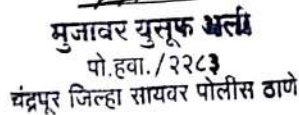 मुजावर युसूफ अली
पो.हवा./२२८३
चंद्रपूर जिल्हा सायबर पोलीस ठाणे